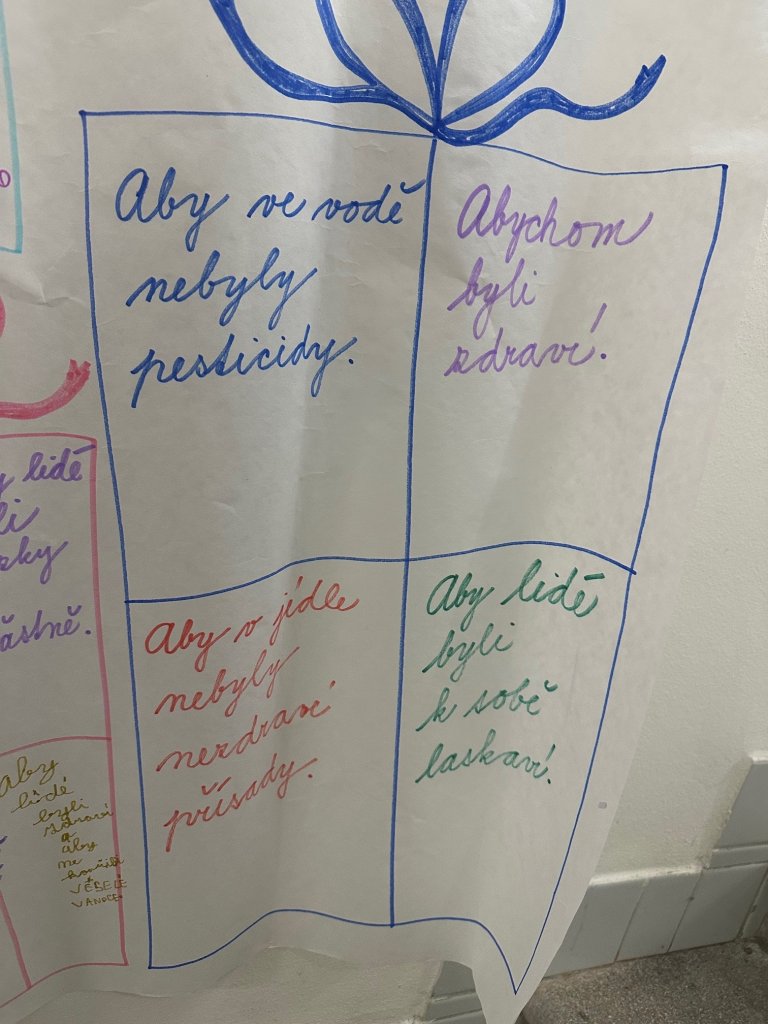 Aby ve vodě
nebyly
pesticidy.
Abychom
byli
zdraví.
Aby v jídle
nebyly
nezdraví
přísady.
Aby lidé
byli
k sobě
laskaví.
lidé
aby
lidé
byli
zdraví
a
aby
ne
VĚSELÉ
VÁNOCE